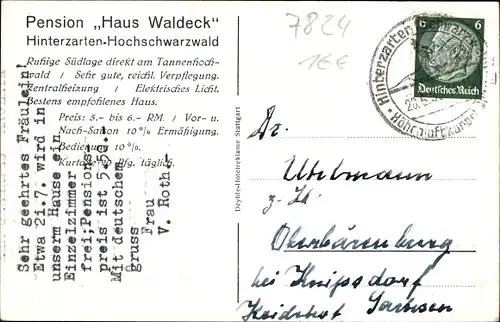 Pension „Haus Waldeck"
Hinterzarten-Hochschwarzwald
Ruhige Südlage direkt am Tannenhoch-
wald / Sehr gute, reichl. Verpflegung.
Zentralheizung / Elektrisches Licht.
Bestens empfohlenes Haus.
Preis: 5.- bis 6.- RM. / Vor- u.
Nach-Saison 10% Ermäßigung.
Bedienung 10%.
Kurtaxe Pfg. täglich.
Sehr geehrtes Fräulein!
Etwa 21.7. wird in
unserm Hause ein
Einzelzimmer
frei; Pensions-
preis ist 5.50.
Mit deutschem
gruss
Frau
V. Roth.-
Deyhle-Hotelreklame Stuttgart
7824
16€
6 6
Deutsches Reich
Hinterzarten
Höhenluftkurort
Dr.
Uhlmann
z. Zt.
Oberbärenburg
bei Kipsdorf
Sachsen